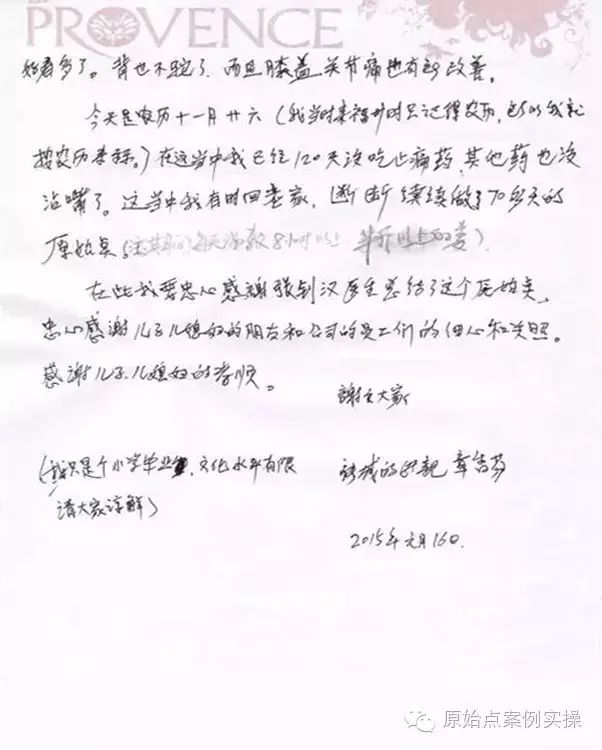 PROVENCE
好看多了。背也不驼了，而且膝盖关节痛也有所改善。
今天是农历十一月廿六（我当时来福州时只记得农历，所以我就
按农历来算。）在这当中我已经120天没吃止痛药，其他药也没
沾嘴了。这当中我有时回老家，断断续续做了70多天的
原始点（这其间每天温敷8小时以上
在此我要忠心感謝張钊汉医生总结了这个原始点，
忠心感谢儿子儿媳妇的朋友和公司的员工们的但心和关照。
感谢儿子儿媳妇的孝顺。
謝谢大家
（我只是个小学毕业，文化水平有限
请大家谅解）
的母親 章
2015年元月16日.
原始点案例实操